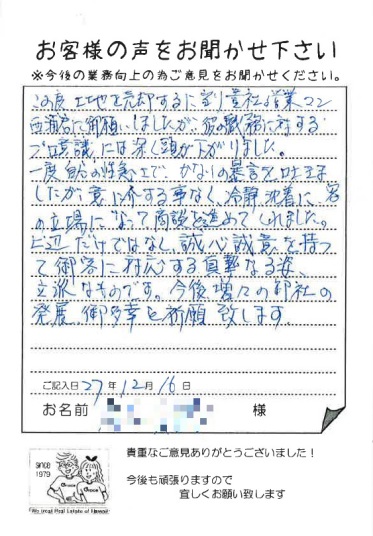 お客様の声をお聞かせ下さい
※今後の業務向上の為ご意見をお聞かせください。
この度土地を売却するに到り貴社営業マン
西浦君に御願いしましたが、彼の職務に対する
プロ意識には深く頭が下がりました。
一度自分の性急上で、かなりの暴言を吐き
したが、意に介する事なく、冷静沈着に、客
の立場になって商談を進めてくれました。
上辺だけではなく、誠心誠意を持っ
て御客に対応する真摯なる姿、
立派なものです。今後増々の御社の
発展、御多幸を祈願致します
ご記入日 27年 12月 16日
お名前 様
貴重なご意見ありがとうございました！
今後も頑張りますので
宜しくお願い致します
SINCE
1979
We Great Real Estate of Hawaii